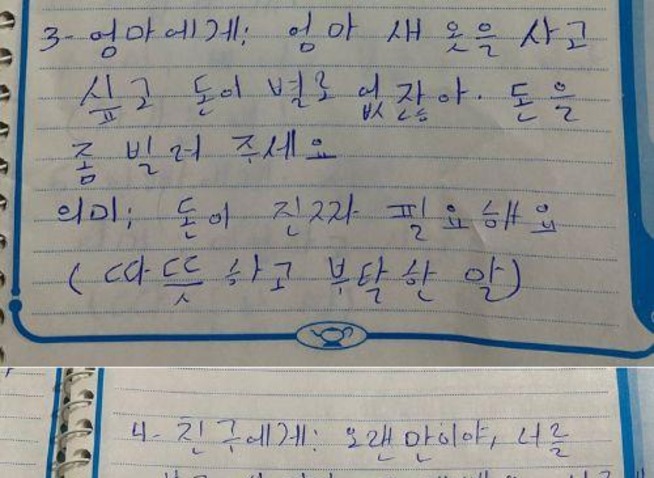 3- 엄마에게: 엄마 새 옷을 사고
싶고 돈이 별로 없잖아. 돈을
좀 빌려 주세요
의미: 돈이 진짜 필요해요
(따뜻하고 부탁한 말)
4- 친구에게: 오랜만이야, 너를